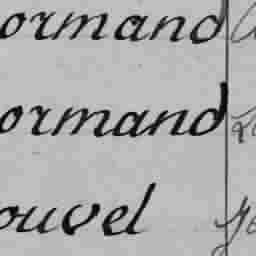 ormand
ormand
ouvel